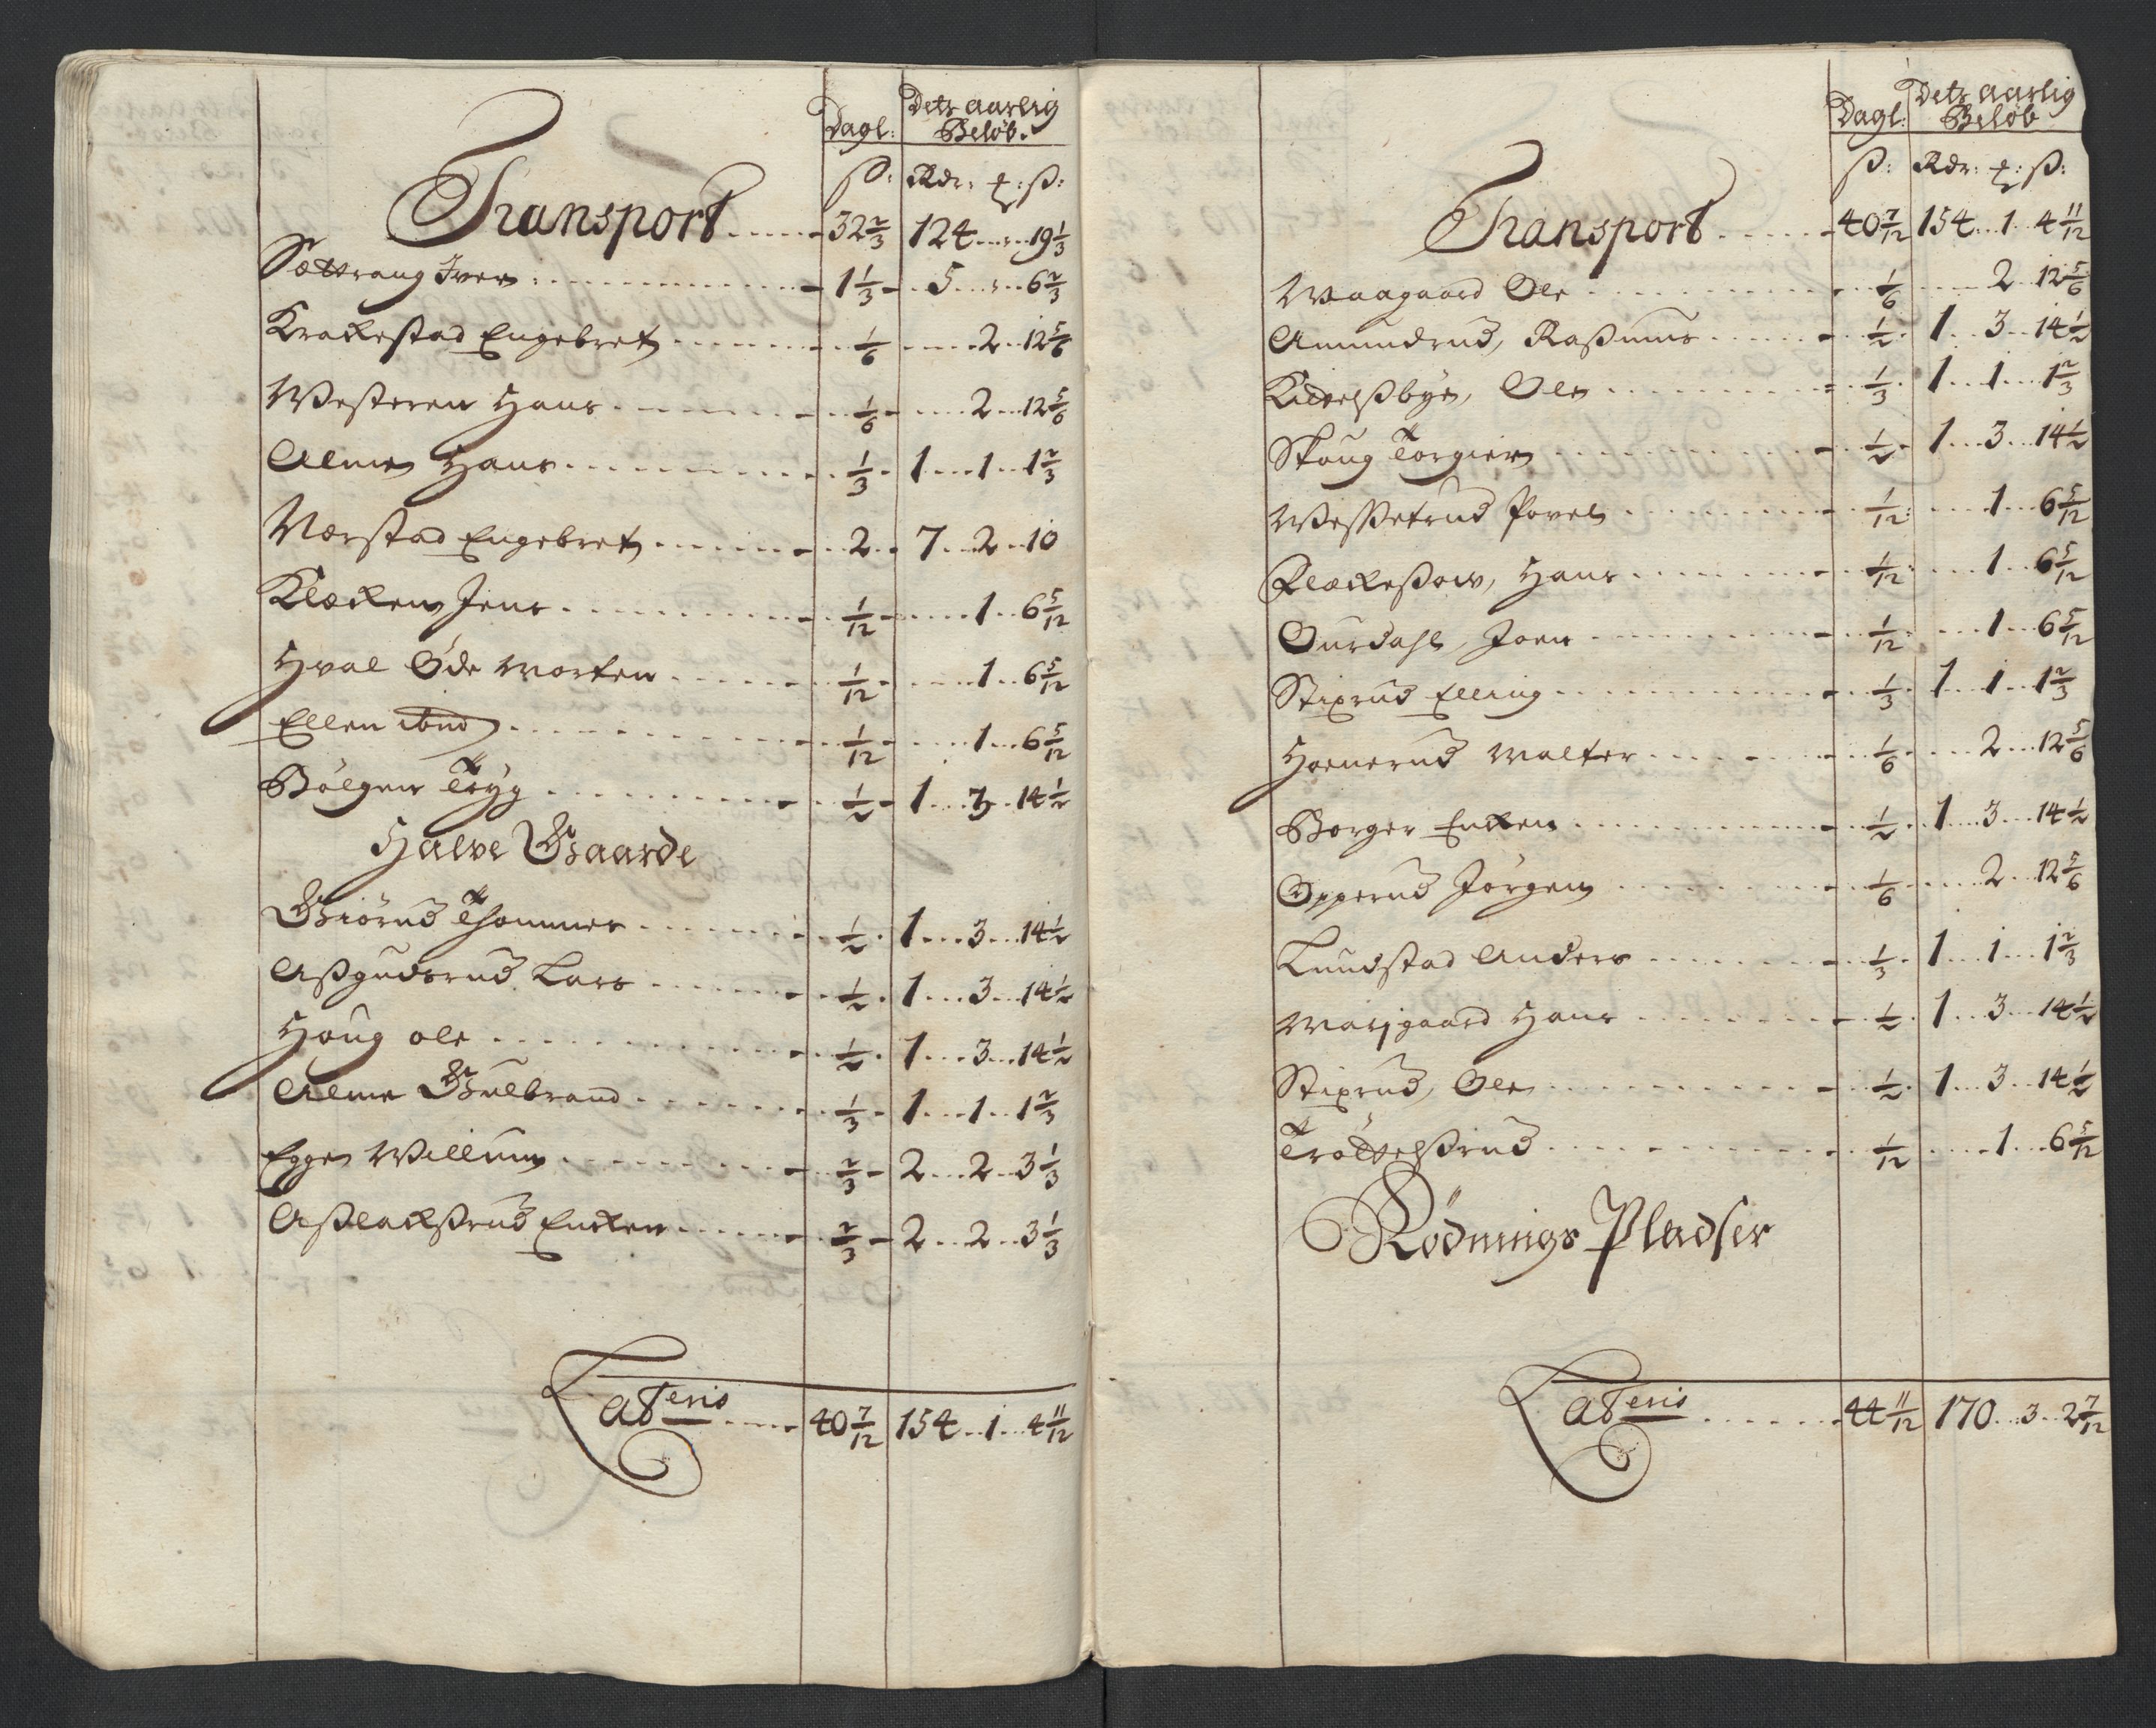 Dagl: Dets aarlig
Beløb.
ß: Rdr: ƚ: ß:
Transport ..... 32 2/3 124 .... 19 1/3
Sættrang Iver ..... 1 1/3 5 .... 6 2/3
Krakestad Engebret ..... 1/6 2 .. 12 5/6
Westeren Hans ..... 1/6 2 .. 12 5/6
Alme Hans ..... 1/3 1 .. 1 .. 1 2/3
Norstad Engebret ..... 2 7 .. 2 .. 10
Klæcken Jens ..... 1/12 1 .. 6 5/12
Hval Øde Morten ..... 1/12 1 .. 6 5/12
Ellen ibid ..... 1/12 1 .. 6 5/12
Bølgen Tryg ..... 1/2 1 .. 3 .. 14 1/2
Halve Gaarde
Giørud Thommes ..... 1/2 1 .. 3 .. 14 1/2
Aßgudsrud Lars ..... 1/2 1 .. 3 .. 14 1/2
Houg ole ..... 1/2 1 .. 3 .. 14 1/2
Alme Gulbrand ..... 1/3 1 .. 1 .. 1 2/3
Egge Willum ..... 2/3 2 .. 2 .. 3 1/3
Aßlackßrud Encken ..... 2/3 2 .. 2 .. 3 1/3
Lateris ..... 40 7/12 154 .. 1 .. 4 11/12
Dagl: Dets aarlig
Beløb
ß: Rdr: ƚ: ß:
Transport ..... 40 7/12 154 .. 1 .. 4 11/12
Waagaard Ole ..... 1/6 2 .. 12 5/6
Amundrud, Raßmus ..... 1/2 1 .. 3 .. 14 1/2
Kittelßbye, Ole ..... 1/3 1 .. 1 .. 1 2/3
Skoug Torgier ..... 1/2 1 .. 3 .. 14 1/2
Weßetrud Povel ..... 1/12 1 .. 6 5/12
Flackeßow, Hans ..... 1/12 1 .. 6 5/12
Ourdahl, Joen ..... 1/12 1 .. 6 5/12
Stixrud Elling ..... 1/3 1 .. 1 .. 1 2/3
Hoenerud Walter ..... 1/6 2 .. 12 5/6
Borger Encken ..... 1/2 1 .. 3 .. 14 1/2
Opperud Jørgen ..... 1/6 2 .. 12 5/6
Lundstad Anders ..... 1/3 1 .. 1 .. 1 2/3
Marjgaard Hans ..... 1/2 1 .. 3 .. 14 1/2
Stixrud, Ole ..... 1/2 1 .. 3 .. 14 1/2
Trøttelßrud ..... 1/12 1 .. 6 5/12
Rødnings Pladser
Lateris ..... 44 11/12 170 .. 3 .. 2 7/12